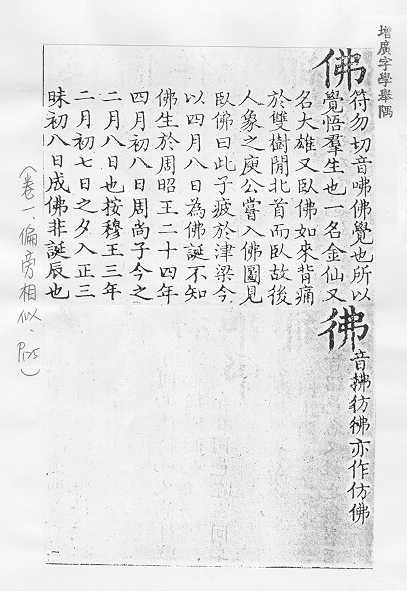 增廣字學舉隅
佛
符勿切音咈佛覺也所以
覺悟羣生也一名金仙又
名大雄又臥佛如來背痛
於雙樹閒北首而臥故後
人象之庾公嘗入佛圖見
臥佛曰此子疲於津梁今
以四月八日為佛誕不知
佛生於周昭王二十四年
四月初八日周尚子今之
二月八日也按穆王三年
二月初七日之夕入正三
昧初八日成佛非誕辰也
彿
音拂彷彿亦作仿佛
(卷一、偏旁相似、P175)